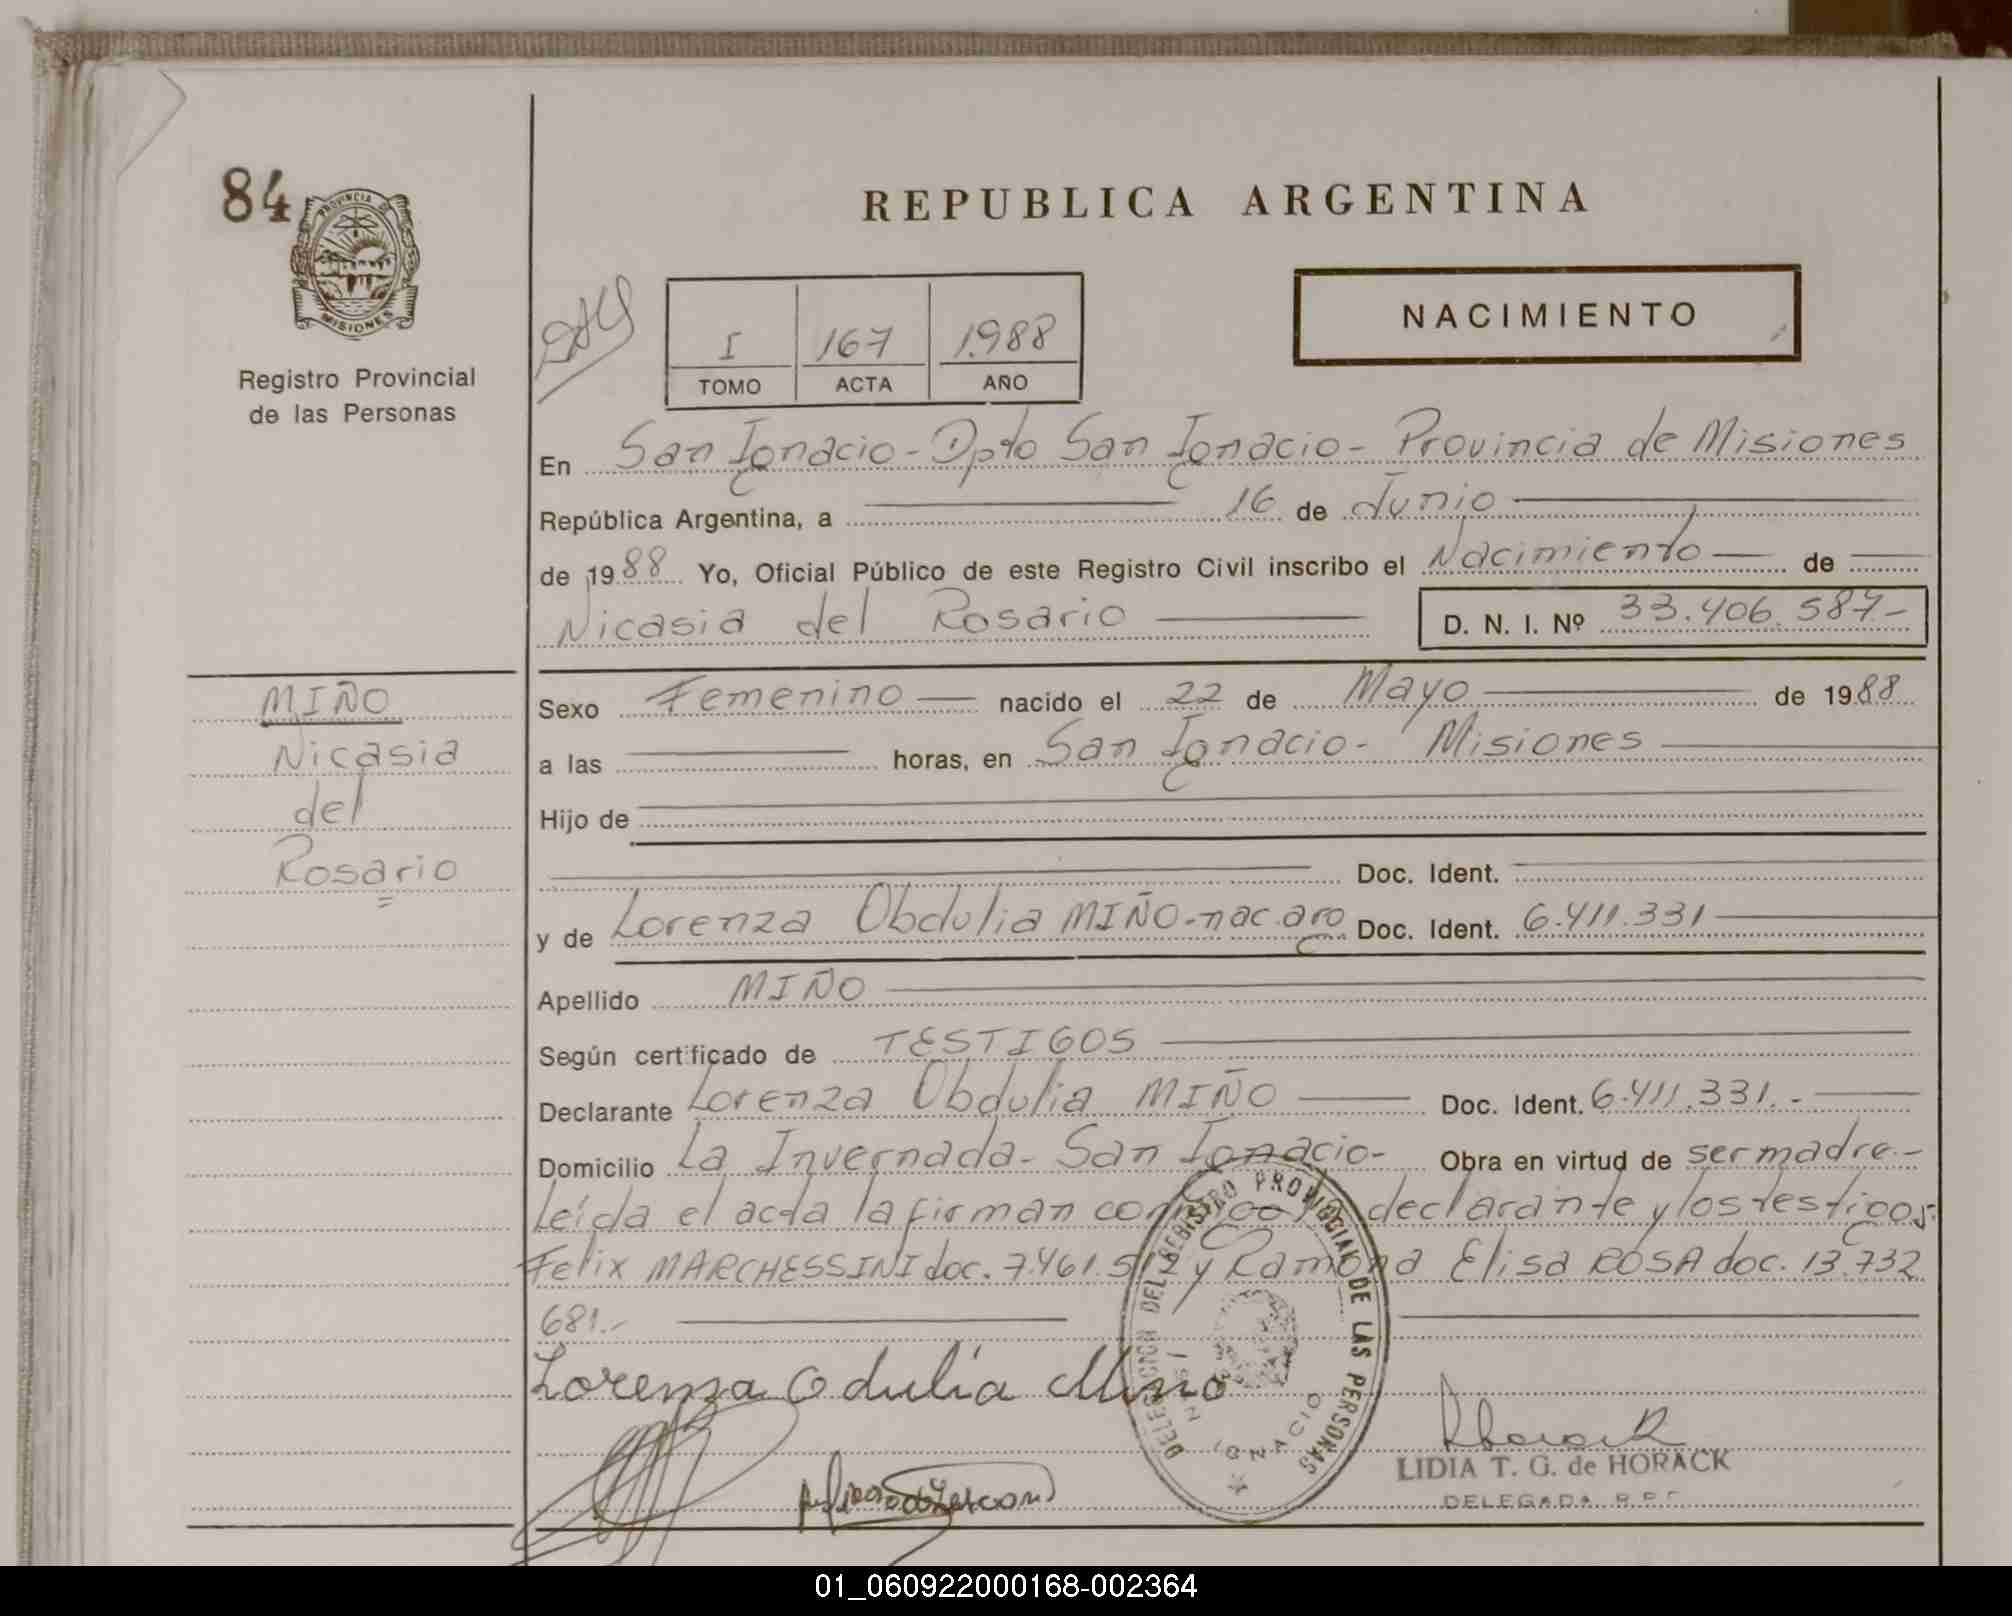 84
PROVINCIA DE
MISIONES
Registro Provincial
de las Personas
REPUBLICA ARGENTINA
I 167 1.988
TOMO ACTA AÑO
NACIMIENTO
En San Ignacio - Dpto San Ignacio - Provincia de Misiones
República Argentina, a 16 de Junio
de 1988 Yo, Oficial Público de este Registro Civil inscribo el Nacimiento de
Nicasia del Rosario D. N. I. Nº 33.406.587-
MIÑO
Nicasia
del
Rosario
Sexo Femenino nacido el 22 de Mayo de 1988
a las horas, en San Ignacio - Misiones
Hijo de
Doc. Ident.
y de Lorenza Obdulia MIÑO-nac. arg Doc. Ident. 6.411.331
Apellido MIÑO
Según certificado de TESTIGOS
Declarante Lorenza Obdulia MIÑO Doc. Ident. 6.411.331.-
Domicilio La Invernada - San Ignacio - Obra en virtud de ser madre.-
Leída el acta la firman conmigo declarante y los testigos:
Felix MARCHESSINI doc. 7.461.512 y Ramona Elisa ROSA doc. 13.732
681.-
Lorenza Odulia Miño
DELEGACION DEL REGISTRO PROVINCIAL DE LAS PERSONAS
SAN IGNACIO
LIDIA T. G. de HORACK
DELEGADA R.P.P.
01_060922000168-002364